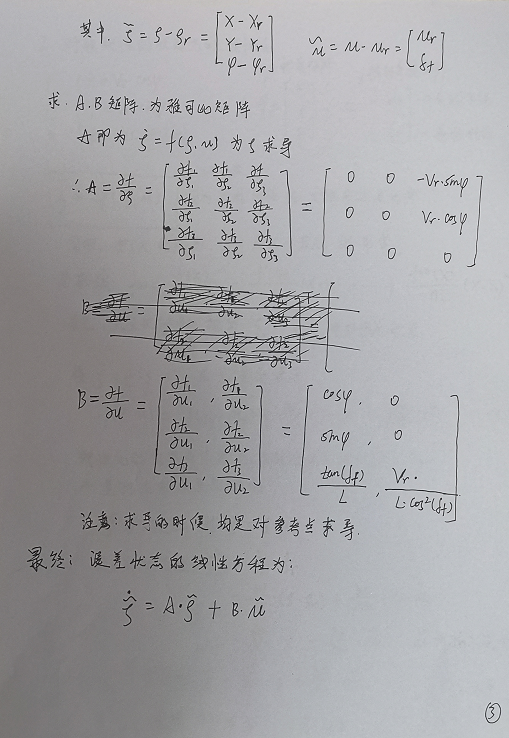 其中. ξ̃ = ξ - ξr = [X - Xr; Y - Yr; φ - φr] ũ = u - ur = [ur; δf]
求. A.B矩阵. 为雅可比矩阵
A即为 ξ̇ = f(ξ, u) 为 ξ 求导
∴ A = ∂f/∂ξ = [∂f1/∂ξ1 ∂f1/∂ξ2 ∂f/∂ξ3; ∂f2/∂ξ1 ∂f2/∂ξ2 ∂f2/∂ξ3; ∂f3/∂ξ1 ∂f3/∂ξ2 ∂f3/∂ξ3] = [0 0 -Vr·sinφ; 0 0 Vr·cosφ; 0 0 0]
B = ∂f/∂u = [∂f1/∂u1, ∂f1/∂u2; ∂f2/∂u1, ∂f2/∂u2; ∂f3/∂u1, ∂f3/∂u2] = [cosφ, 0; sinφ, 0; tan(δf)/L, Vr·/L·cos²(δf)]
注意: 求导的时候, 均是对参考点求导.
最终: 误差状态的线性方程为:
ξ̃̇ = A·ξ̃ + B·ũ
③